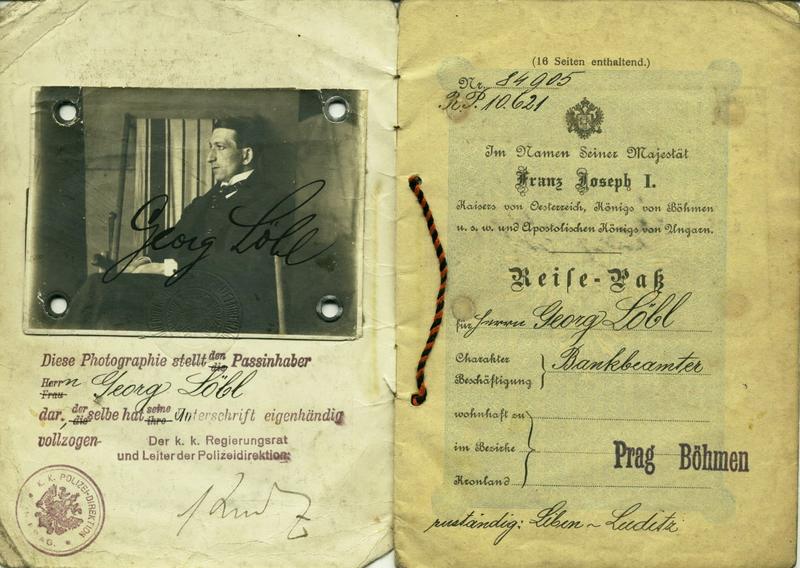 Georg Löbl
Diese Photographie stellt den die Passinhaber
Herrn Frau Georg Löbl
dar, der die selbe hat seine ihre Unterschrift eigenhändig
vollzogen
Der k. k. Regierungsrat
und Leiter der Polizeidirektion:
K. K. POLIZEI-DIREKTION
PRAG.
(16 Seiten enthaltend.)
Nr. 84905
R.P. 10.621
Im Namen Seiner Majestät
Franz Joseph I.
Kaisers von Oesterreich, Königs von Böhmen
u. s. w. und Apostolischen Königs von Ungarn.
Reise-Paß
für Herrn Georg Löbl
Charakter
Beschäftigung
Bankbeamter
wohnhaft zu
im Bezirke
Kronland
Prag Böhmen
zuständig: Liben - Luditz